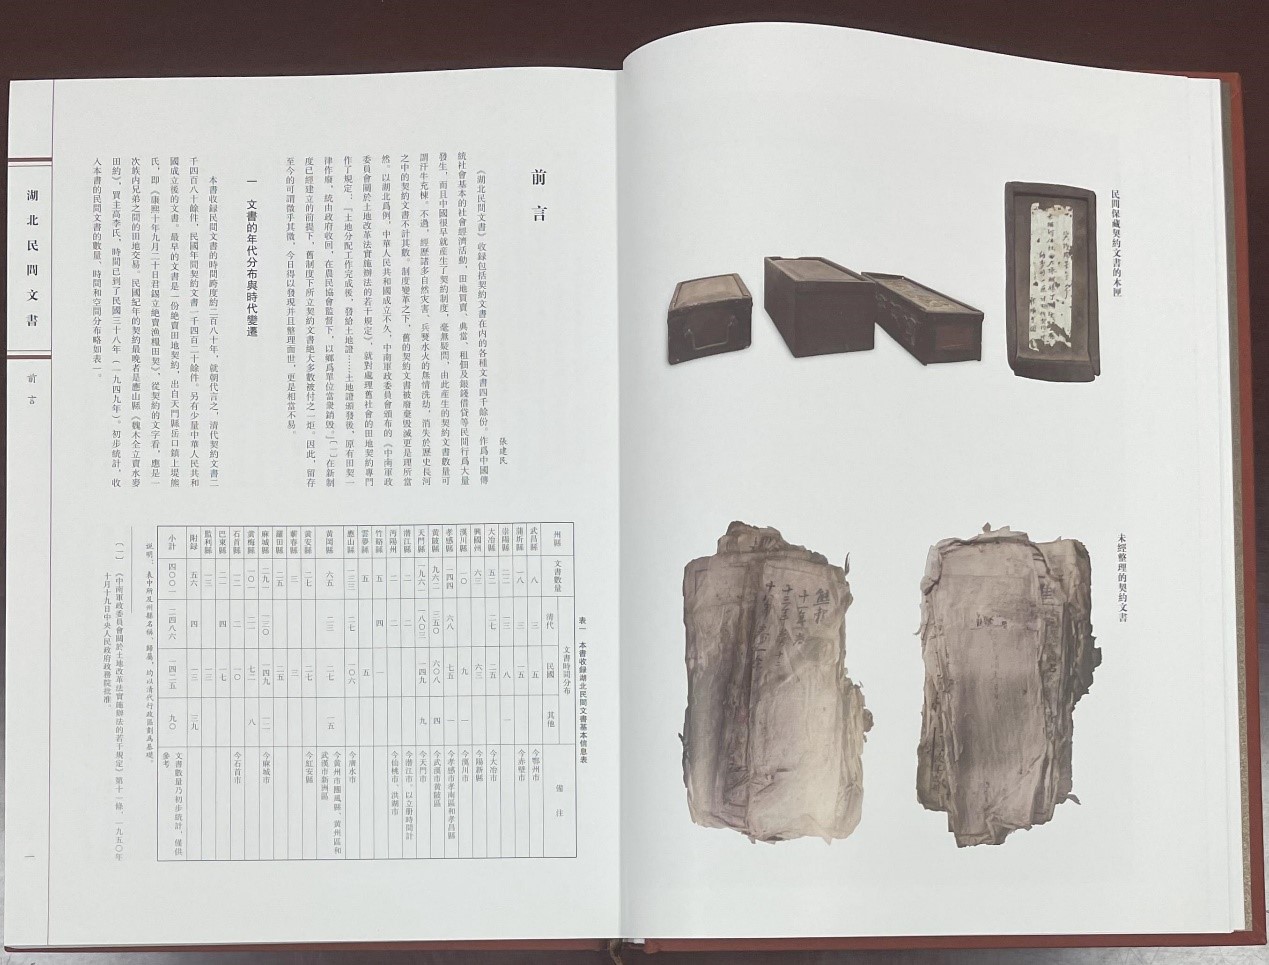 民間保藏契約文書的木匣
未經整理的契約文書
前言
張建民
《湖北民間文書》收録包括契約文書在内的各種文書四千餘份。作爲中國傳
統社會基本的社會經濟活動,田地買賣、典當、租佃及銀錢借貸等民間行爲大量
發生,而且中國很早就産生了契約制度,毫無疑問,由此産生的契約文書數量可
謂汗牛充棟。不過,經歷諸多自然灾害、兵燹水火的無情洗劫,消失於歷史長河
之中的契約文書不計其數。制度變革之下,舊的契約文書被廢棄毁滅更是理所當
然。以湖北爲例,中華人民共和國成立不久,中南軍政委員會頒布的《中南軍政
委員會關於土地改革法實施辦法的若干規定》,就對處理舊社會的田地契約專門
作了規定:「土地分配工作完成後,發給土地證……土地證頒發後,原有田契一
律作廢,統由政府收回,在農民協會監督下,以鄉爲單位當衆銷毁。」〔一〕在新制
度已經建立的前提下,舊制度下所立契約文書絶大多數被付之一炬。因此,留存
至今的可謂微乎其微,今日得以發現并且整理面世,更是相當不易。
一 文書的年代分布與時代變遷
本書收録民間文書的時間跨度約二百八十年,就朝代言之,清代契約文書二
千四百八十餘件,民國年間契約文書一千四百二十餘件。另有少量中華人民共和
國成立後的文書。最早的文書是一份絶賣田地契約,出自天門縣岳口鎮上堤熊
氏,即《康熙十年九月二十日君錫立絶賣漁糧田契》,從契約的文字看,應是一
次族内兄弟之間的田地交易。民國紀年的契約最晚者是應山縣《魏木全立賣水麥
田約》,買主高李氏,時間已到了民國三十八年(一九四九年)。初步統計,收
入本書的民間文書的數量、時間和空間分布略如表一。
表一 本書收録湖北民間文書基本信息表
州縣 文書數量 文書時間分布 清代 民國 其他 備注
武昌縣 八 三 五 今鄂州市
蒲圻縣 一八 今赤壁市
崇陽縣
大冶縣 五二 二七 二五 今大冶市
興國州 六三 六三 今陽新縣
漢川縣 一〇 九 一 今漢川市
孝感縣 一四四 六八 七五 一 今孝感市孝南區和孝昌縣
黃陂縣 九六二 三五〇 六〇八 四 今武漢市黃陂區
天門縣 一九六一 一八〇三 一四九 九 今天門市
潛江縣 今潛江市,以立册時間計
沔陽州 今仙桃市、洪湖市
竹谿縣 五 四 一
雲夢縣 五 五
應山縣 一三三 二七 一〇六 今廣水市
黃岡縣 六五 今黃州市團風縣、黃州區和
武漢市新洲區
黃安縣 二七 二七 今紅安縣
蘄春縣 三 三
羅田縣 二五 二五
麻城縣 今麻城市
黃梅縣
石首縣 今石首市
巴東縣
監利縣 一三
附録 五六 四 一三 三九
小計 四〇〇一 二四八六 一四二五 九〇 文書數量乃初步統計,僅供
參考
説明:表中所及州縣名稱、歸屬,均以清代行政區劃爲基礎。
〔一〕《中南軍政委員會關於土地改革法實施辦法的若干規定》第十一條,一九五〇年
十月十九日中央人民政府政務院批准。
湖北民間文書
前言
一